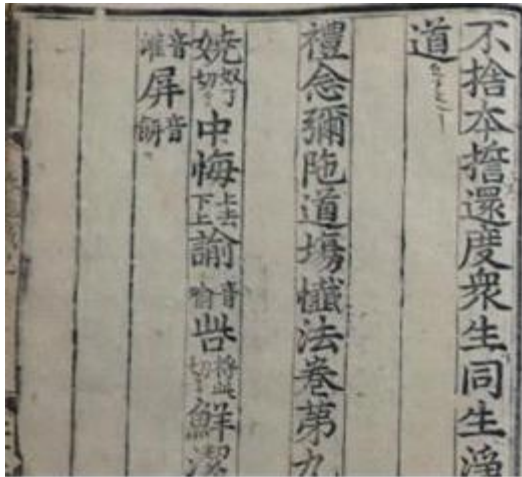 不捨本擔還度衆生同生淨
道
禮念彌陁道塲懺法卷第九
嬈奴了切中悔上去下上諭音喻呰將此切鮮潔
音屏音餠